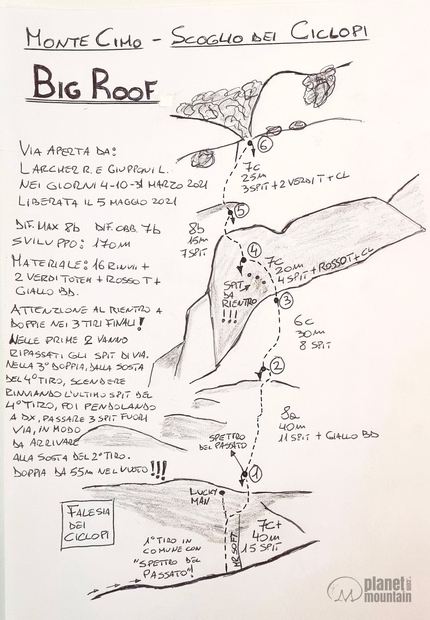 MONTE CIMO - SCOGLIO DEI CICLOPI
BIG ROOF
VIA APERTA DA:
LARCHER R. E GIUPPONI L.
NEI GIORNI 4-10-31 MARZO 2021
LIBERATA IL 5 MAGGIO 2021
DIF. MAX 8b DIF. OBB. 7b
SVILUPPO: 170m
MATERIALE: 16 RINVII +
2 VERDI TOTEM + ROSSO T +
GIALLO BD.
ATTENZIONE AL RIENTRO A
DOPPIE NEI 3 TIRI FINALI!
NELLE PRIME 2 VANNO
RIPASSATI GLI SPIT DI VIA.
NELLA 3° DOPPIA, DALLA SOSTA
DEL 4° TIRO, SCENDERE
RINVIANDO L'ULTIMO SPIT DEL
4° TIRO, POI PENDOLANDO
A DX, PASSARE 3 SPIT FUORI
VIA, IN MODO
DA ARRIVARE
ALLA SOSTA DEL 2° TIRO.
DOPPIA DA 55m NEL VUOTO!!!
6
7c
25m
3 SPIT + 2 VERDI T + CL
5
8b
15m
7 SPIT
4
7c
20m
4 SPIT + ROSSO T + CL
SPIT
DA
RIENTRO
!!!
3
6c
30m
8 SPIT
2
8a
40m
11 SPIT + GIALLO BD
SPETTRO
DEL PASSATO
1
LUCKY
MAN
FALESIA
DEI
CICLOPI
7c+
40m
15 SPIT
MR SOFT
1° TIRO IN
COMUNE CON
"SPETTRO DEL
PASSATO"!
planet
mountain